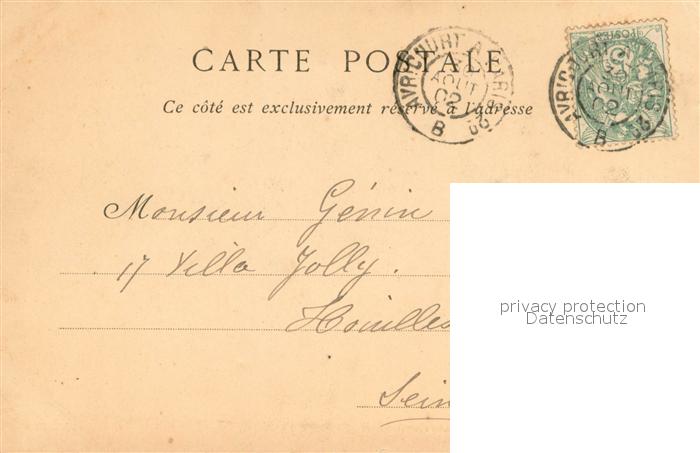 CARTE POSTALE
Ce côté est exclusivement réservé à l'adresse
AVRICOURT A PARIS
AOUT
02
B
AVRICOURT A PARIS
AOUT
02
B
POSTES
Monsieur Génin
17 Villa Jolly.
Houilles
Sein
privacy protection
Datenschutz